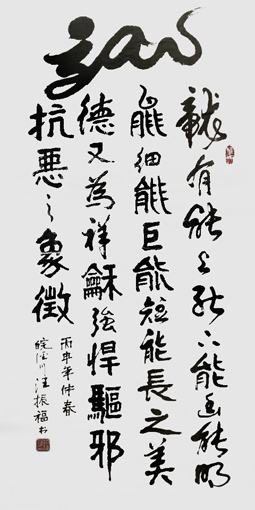 龍有能上能下能幽能明
能細能巨能短能長之美
德又為祥龢強悍驅邪
抗悪之象徵
丙申年仲春
皖涇川汪振福书